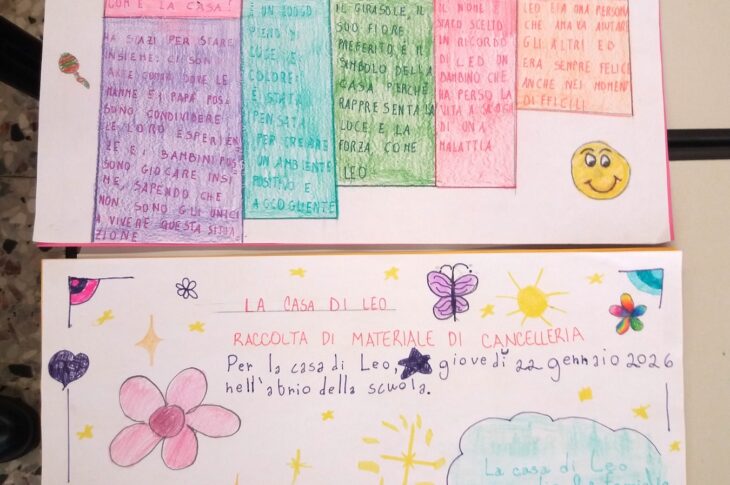 COM'È LA CASA?
HA SPAZI PER STARE
INSIEME: CI SONO
DOVE LE
MAMME E I PAPÀ POS
SONO CONDIVIDERE
LE LORO ESPERIEN
ZE E I BAMBINI POS
SONO GIOCARE INSI
ME, SAPENDO CHE
NON SONO GLI UNICI
A VIVERE QUESTA SITUA
ZIONE
È UN LUOGO
PIENO DI
LUCE E
COLORE:
È STATA
PENSATA
PER CREARE
UN AMBIENTE
POSITIVO E
ACCOGLIENTE
IL GIRASOLE, IL
SUO FIORE
PREFERITO È IL
SIMBOLO DELLA
CASA PERCHÉ
RAPPRESENTA LA
LUCE E LA
FORZA COME
LEO
IL NOME È
STATO SCELTO
IN RICORDO
DI LEO UN
BAMBINO CHE
HA PERSO LA
VITA A CAUSA
DI UNA
MALATTIA
LEO ERA UNA PERSONA
CHE AMAVA AIUTARE
GLI ALTRI ED
ERA SEMPRE FELICE
ANCHE NEI MOMENTI
DIFFICILI
LA CASA DI LEO
RACCOLTA DI MATERIALE DI CANCELLERIA
Per la casa di Leo, giovedì 22 gennaio 2026
nell'atrio della scuola.
La casa di Leo